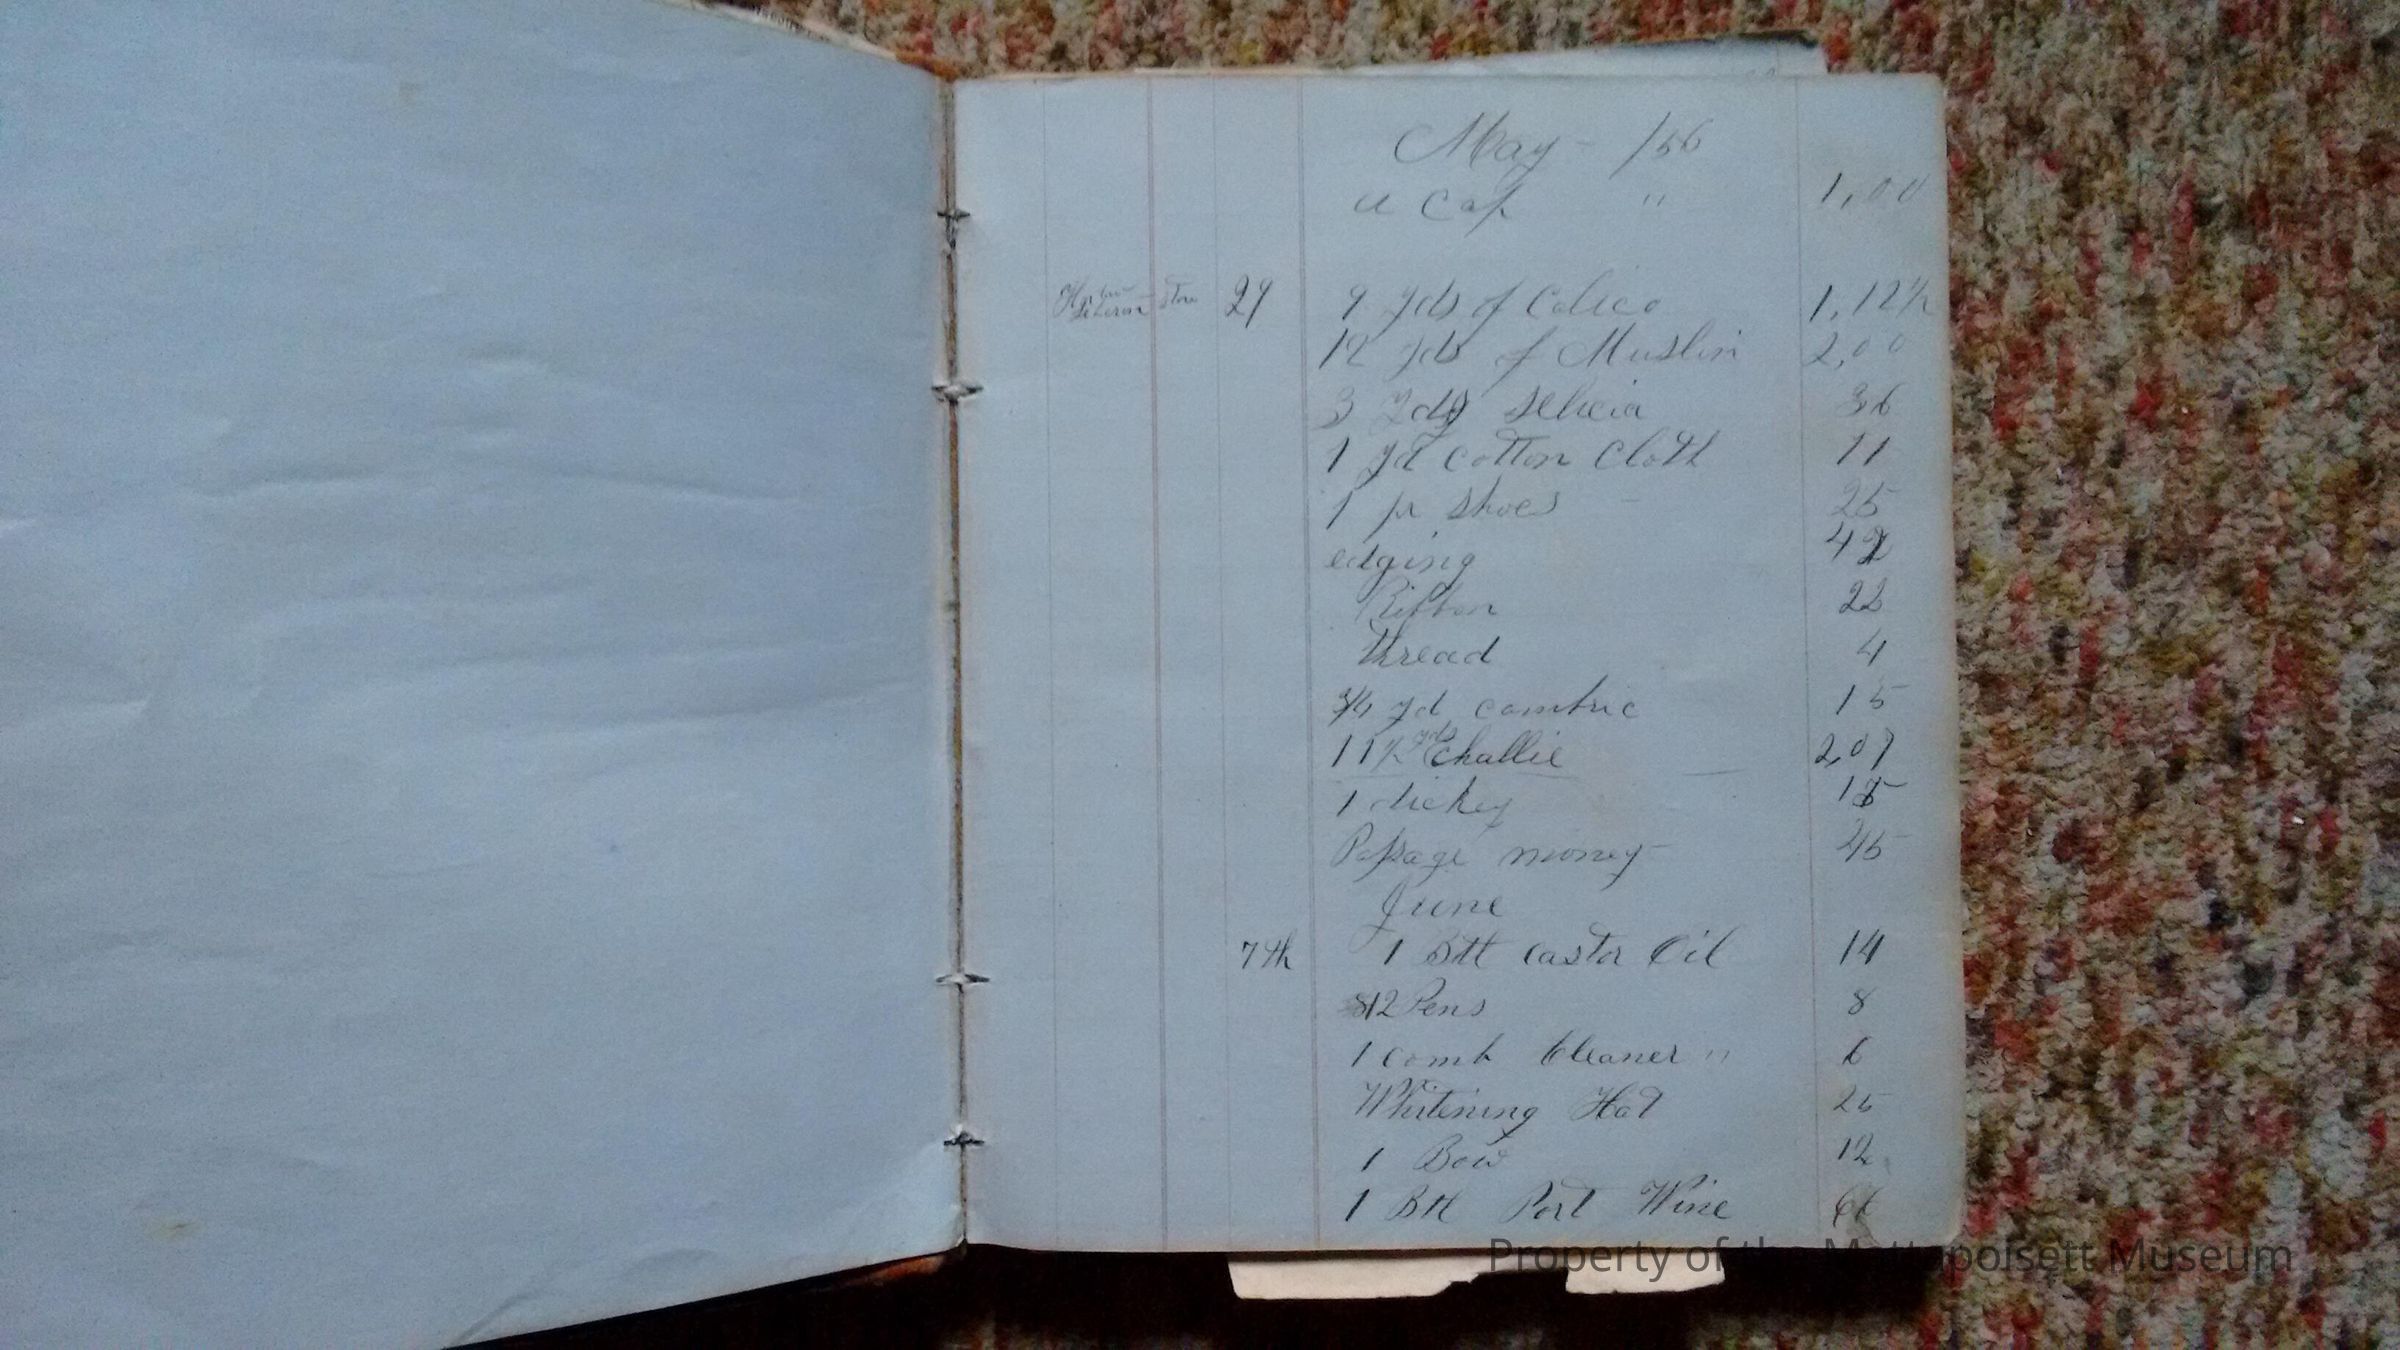 May - /56
a Cap " 1,00
Store 29 9 yds of Calico 1,12½
12 yds of Muslin 2,00
3 yds Silicia 36
1 yd cotton Cloth 11
1 pr Shoes - 25
edging 42
Ribbon 22
thread 4
3/4 yd cambric 15
11½ yds Challie 2,07
1 dickey 15
Passage money 45
June
7th 1 Btl castor Oil 14
12 Pens 8
1 comb Cleaner " 6
Whitening Hat 25
1 Bow 12
1 Btl Port Wine 66
Property of the Mattapoisett Museum